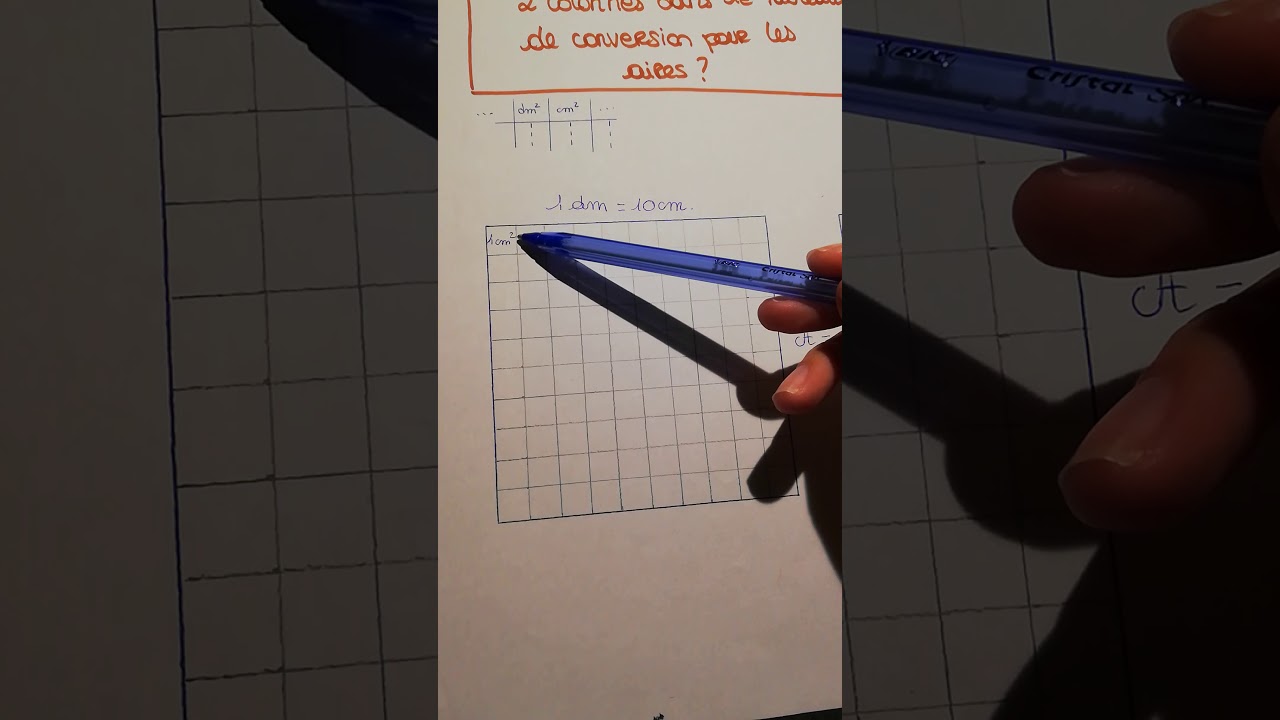 2 colonnes dans le tableau
de conversion pour les
aires ?
... dm² cm² ...
1 dm = 10 cm.
1 cm²
BIC Cristal
A =
BIC Cristal
A =